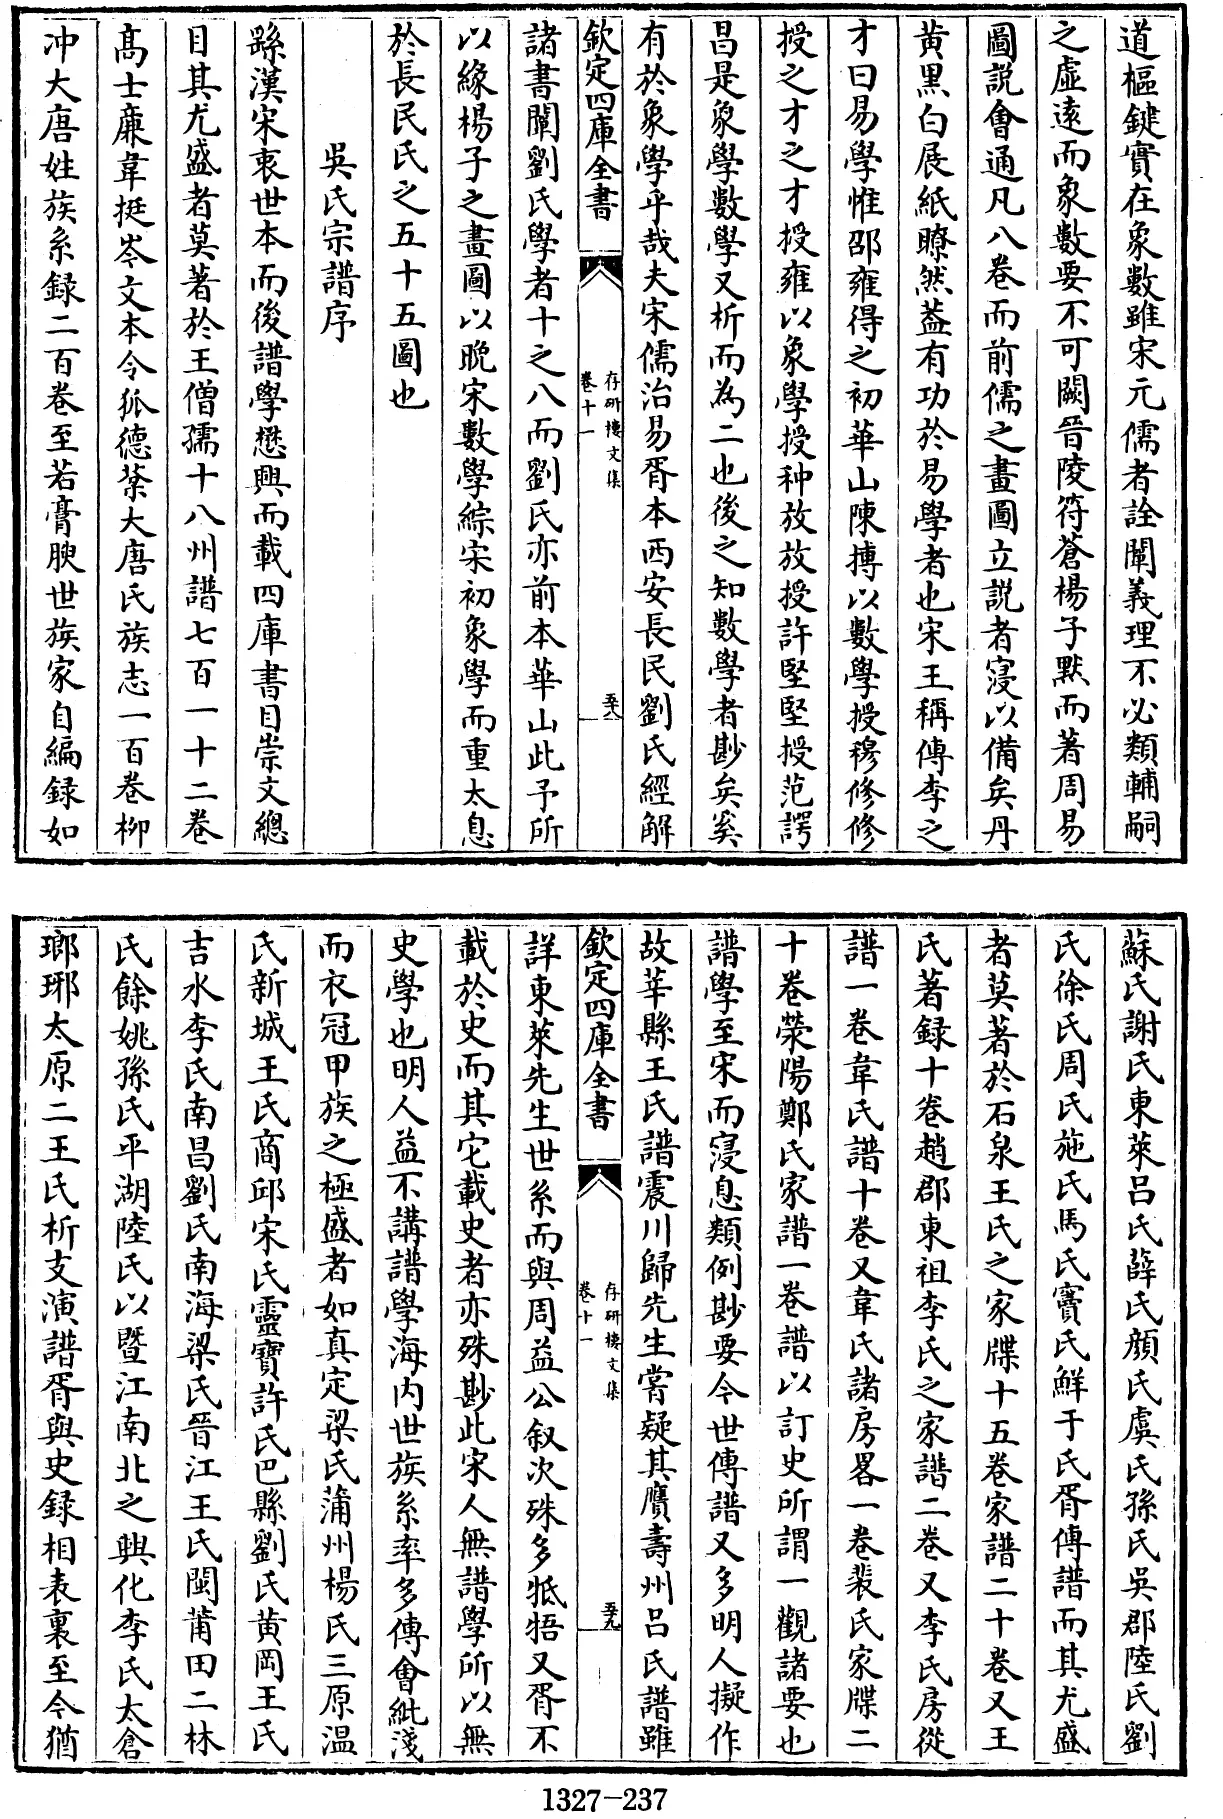 道樞鍵實在象數雖宋元儒者詮闡義理不必類輔嗣
之虛遠而象數要不可闕晉陵符蒼楊子默而著周易
圖説會通凡八卷而前儒之畫圖立説者寖以備矣丹
黄黑白展紙瞭然葢有功於易學者也宋王稱傳李之
才曰易學惟邵雍得之初華山陳摶以數學授穆修修
授之才之才授雍以象學授种放放授許堅堅授范諤
昌是象學數學又析而為二也後之知數學者尠矣奚
有於象學乎哉夫宋儒治易胥本西安長民劉氏經解
欽定四庫全書
存研樓文集
卷十一
五十八
諸書闡劉氏學者十之八而劉氏亦前本華山此予所
以緣楊子之畫圖以晩宋數學綜宋初象學而重太息
於長民氏之五十五圖也
吳氏宗譜序
繇漢宋衷世本而後譜學懋興而載四庫書目崇文總
目其尤盛者莫著於王僧孺十八州譜七百一十二卷
髙士亷韋挺岑文本令狐德棻大唐氏族志一百卷柳
冲大唐姓族系録二百卷至若膏腴世族家自編録如
蘇氏謝氏東萊吕氏薛氏顔氏虞氏孫氏吳郡陸氏劉
氏徐氏周氏施氏馬氏竇氏鮮于氏胥傳譜而其尤盛
者莫著於石泉王氏之家牒十五卷家譜二十卷又王
氏著録十卷趙郡東祖李氏之家譜二卷又李氏房從
譜一卷韋氏譜十卷又韋氏諸房畧一卷裴氏家牒二
十卷滎陽鄭氏家譜一卷譜以訂史所謂一觀諸要也
譜學至宋而寖息類例尠要今世傳譜又多明人擬作
故莘縣王氏譜震川歸先生嘗疑其贋壽州吕氏譜雖
欽定四庫全書
存研樓文集
卷十一
五十九
詳東萊先生世系而與周益公叙次殊多牴牾又胥不
載於史而其它載史者亦殊尠此宋人無譜學所以無
史學也明人益不講譜學海内世族系率多傅會紕淺
而衣冠甲族之極盛者如真定梁氏蒲州楊氏三原温
氏新城王氏商邱宋氏靈寶許氏巴縣劉氏黄岡王氏
吉水李氏南昌劉氏南海梁氏晉江王氏閩莆田二林
氏餘姚孫氏平湖陸氏以暨江南北之興化李氏太倉
瑯琊太原二王氏析支演譜胥與史録相表裏至今猶
1327-237